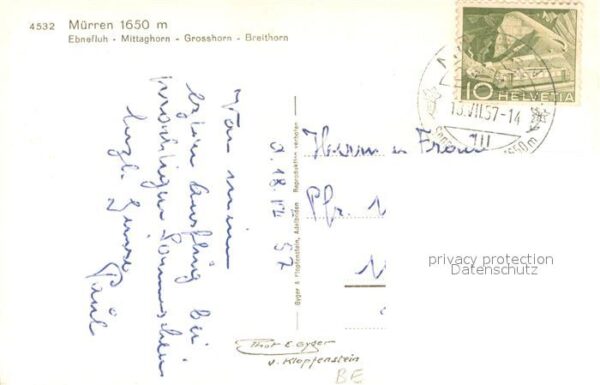 4532 Mürren 1650 m
Ebnefluh - Mittaghorn - Grosshorn - Breithorn
10
HELVETIA
13.VII.57-14
1650 m
Von meinem
Ausflug bei
prächtigem Sonnenschein
herzl. Grüsse
Paul
d. 13. VII 57
Gyger & Klopfenstein, Adelboden Reproduktion verboten
Herrn u Frau
Pfr.
privacy protection
Datenschutz
Phot E. Gyger
v. Klopfenstein
BE